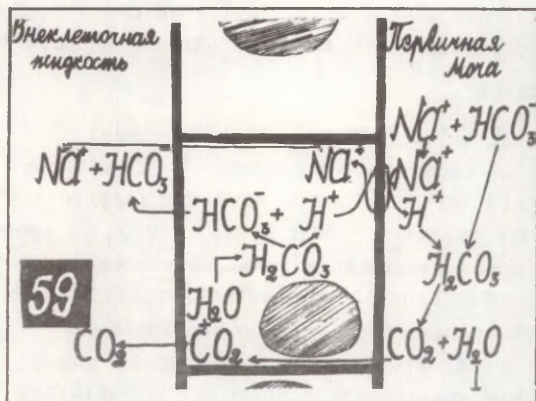 Внеклеточная
жидкость
Первичная
моча
Na⁺ + HCO₃⁻
Na⁺ + HCO₃⁻
Na⁺
Na⁺
HCO₃⁻ + H⁺
H⁺
H₂CO₃
H₂CO₃
59
H₂O
+
CO₂
CO₂
CO₂ + H₂O